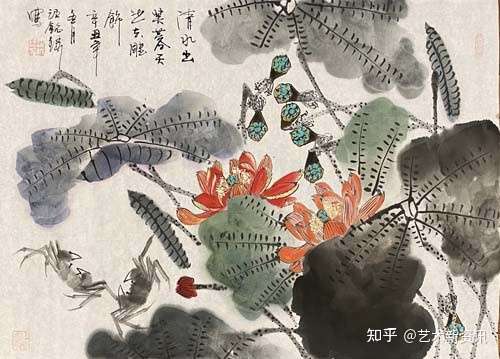 清水出
芙蓉天
然去雕
飾
辛丑年
月
知乎 @艺术新资讯